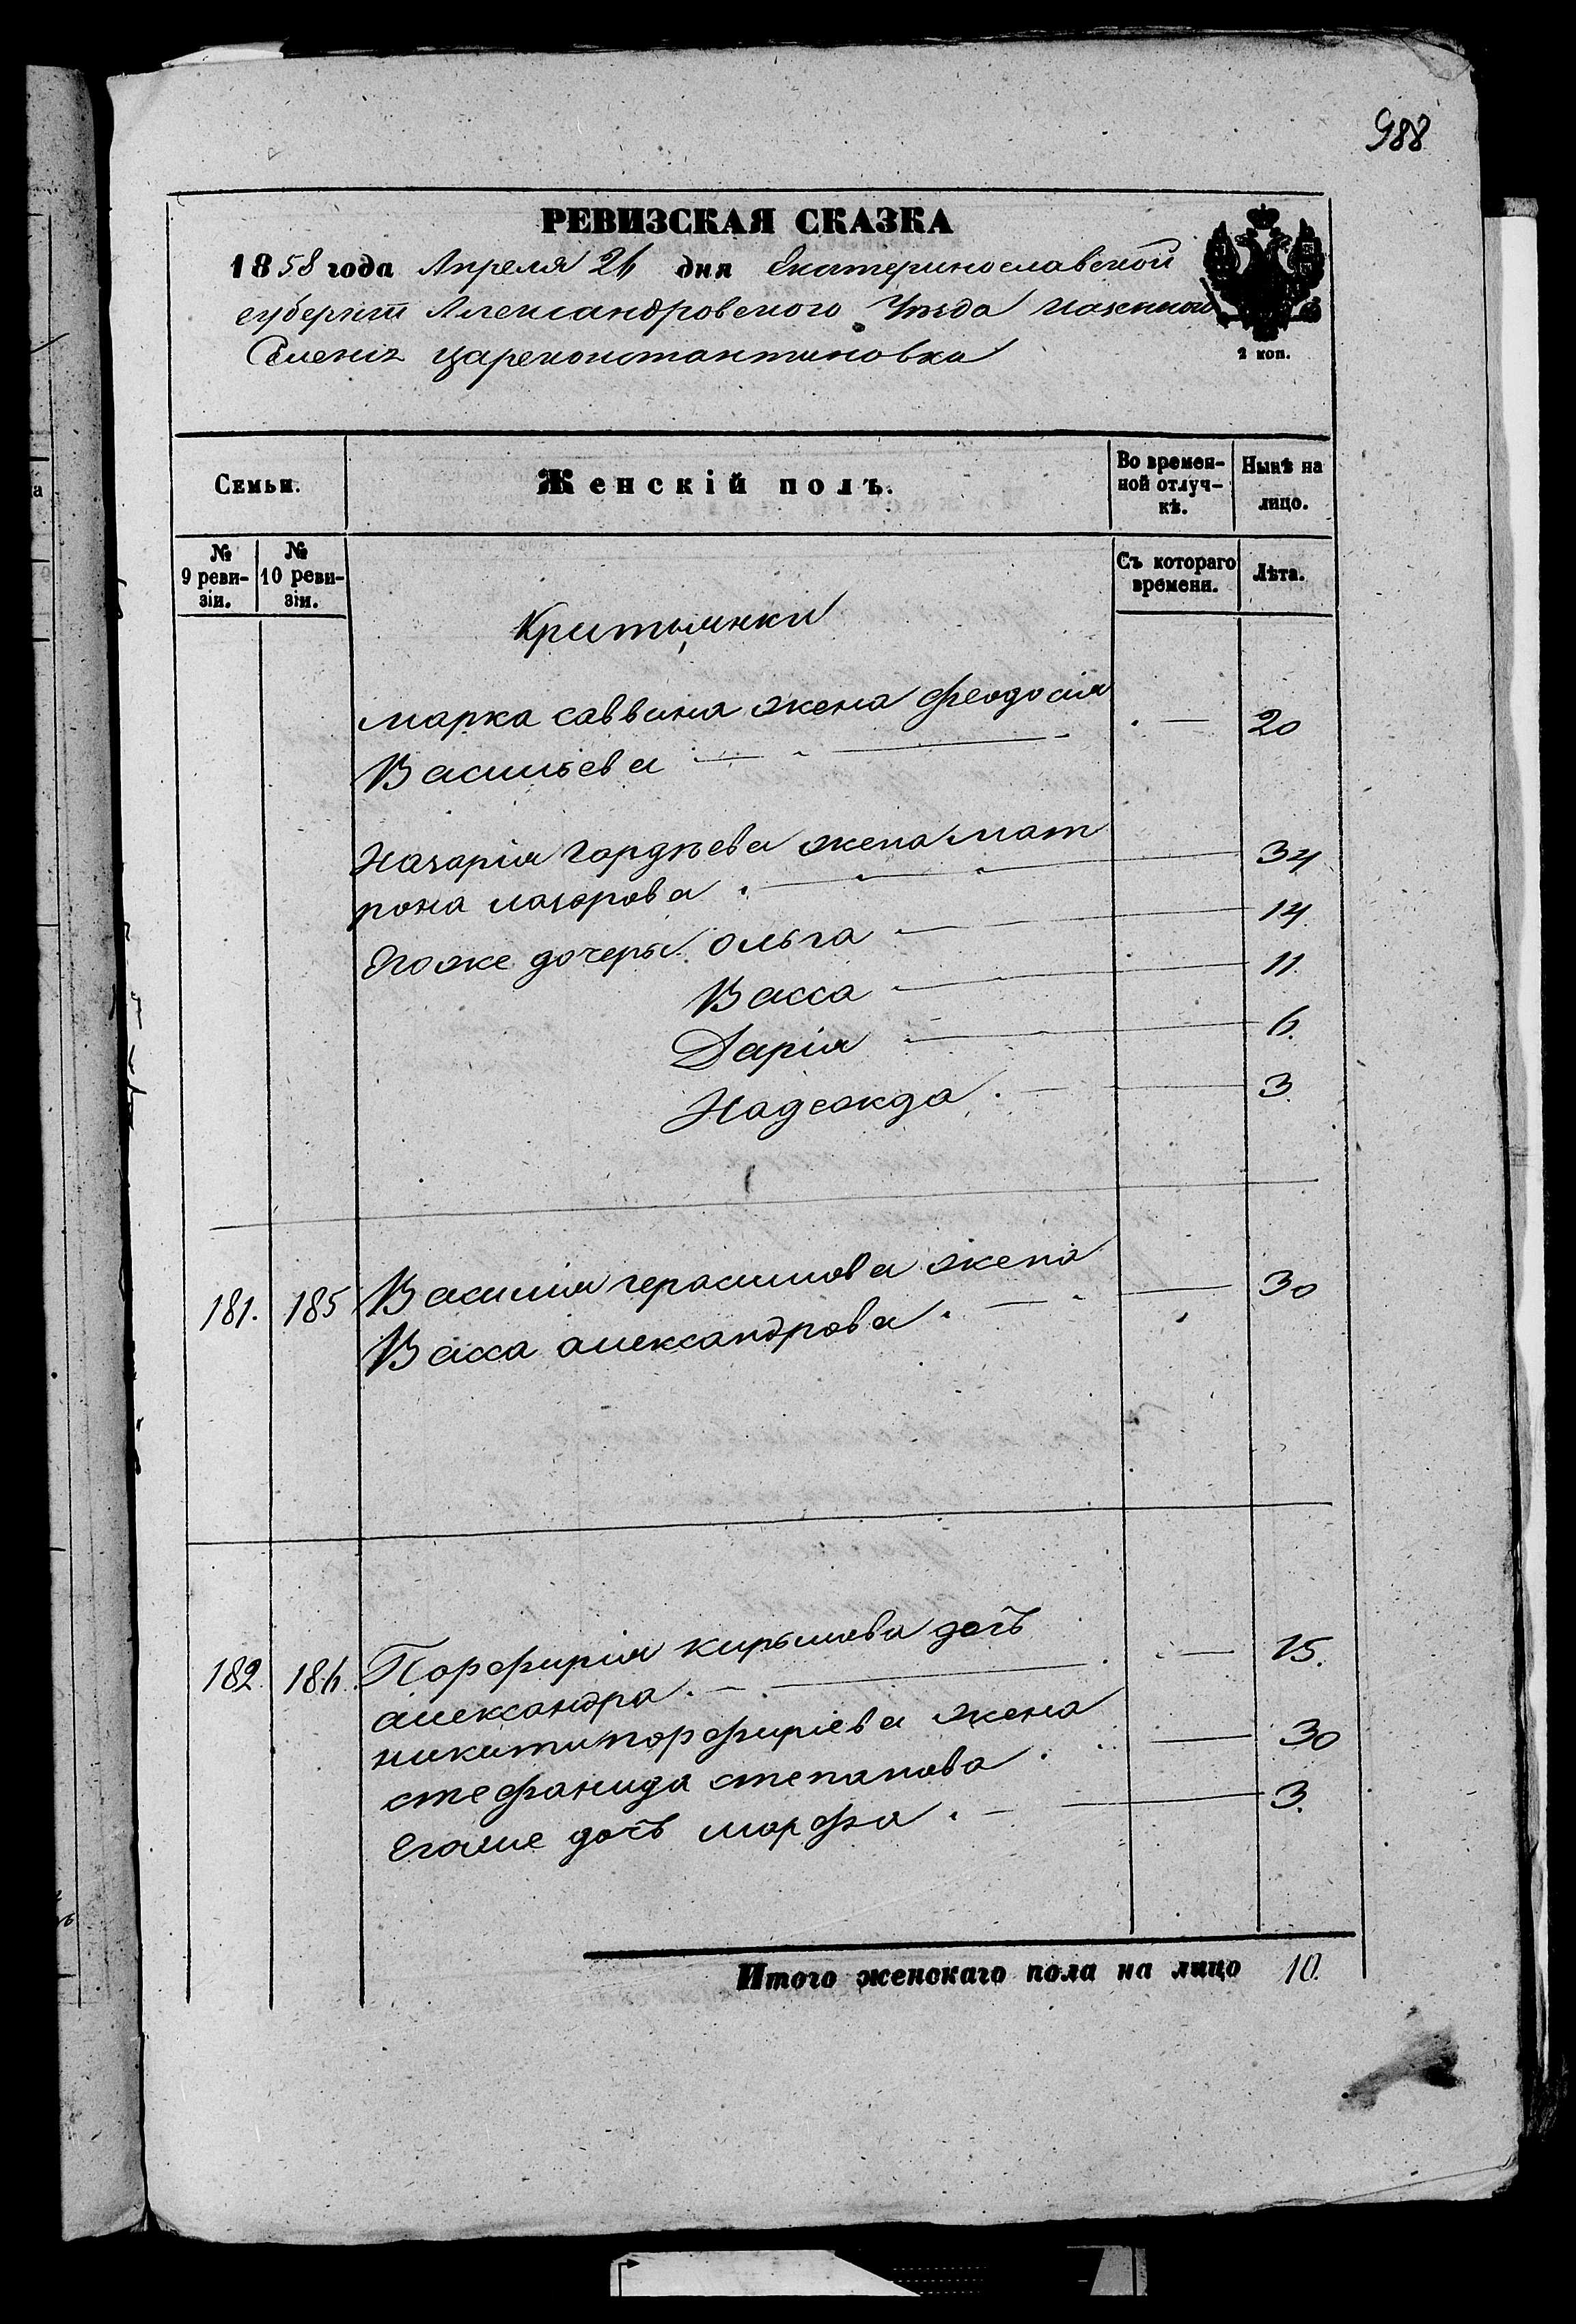 988
РЕВИЗСКАЯ СКАЗКА
1858 года Апреля 26 дня Екатеринославской
губерніи Александровского Уѣзда казенного
Селенія Цареконстантиновка
2 коп.
Семьи.
Женскій полъ.
Во времен-
ной отлуч-
кѣ.
Нынѣ на
лицо.
№
9 реви-
зіи.
№
10 реви-
зіи.
Съ котораго
времени.
Лѣта.
марка саввина жена феодосия
Васильева 20
Назарія Гордѣева жена мат
рона лазарова 34
Егоже дочеры ольга 14
Васса 11
Дарія 6
Надежда 3
181. 185 Василия герасимова жена 30
Васса александрова
182 186 Порфирия кирылова дочь 15.
александра
никити порфиріева жена 30
стефанида степанова
Егоже дочь марфа 3.
Итого женскаго пола на лицо 10.